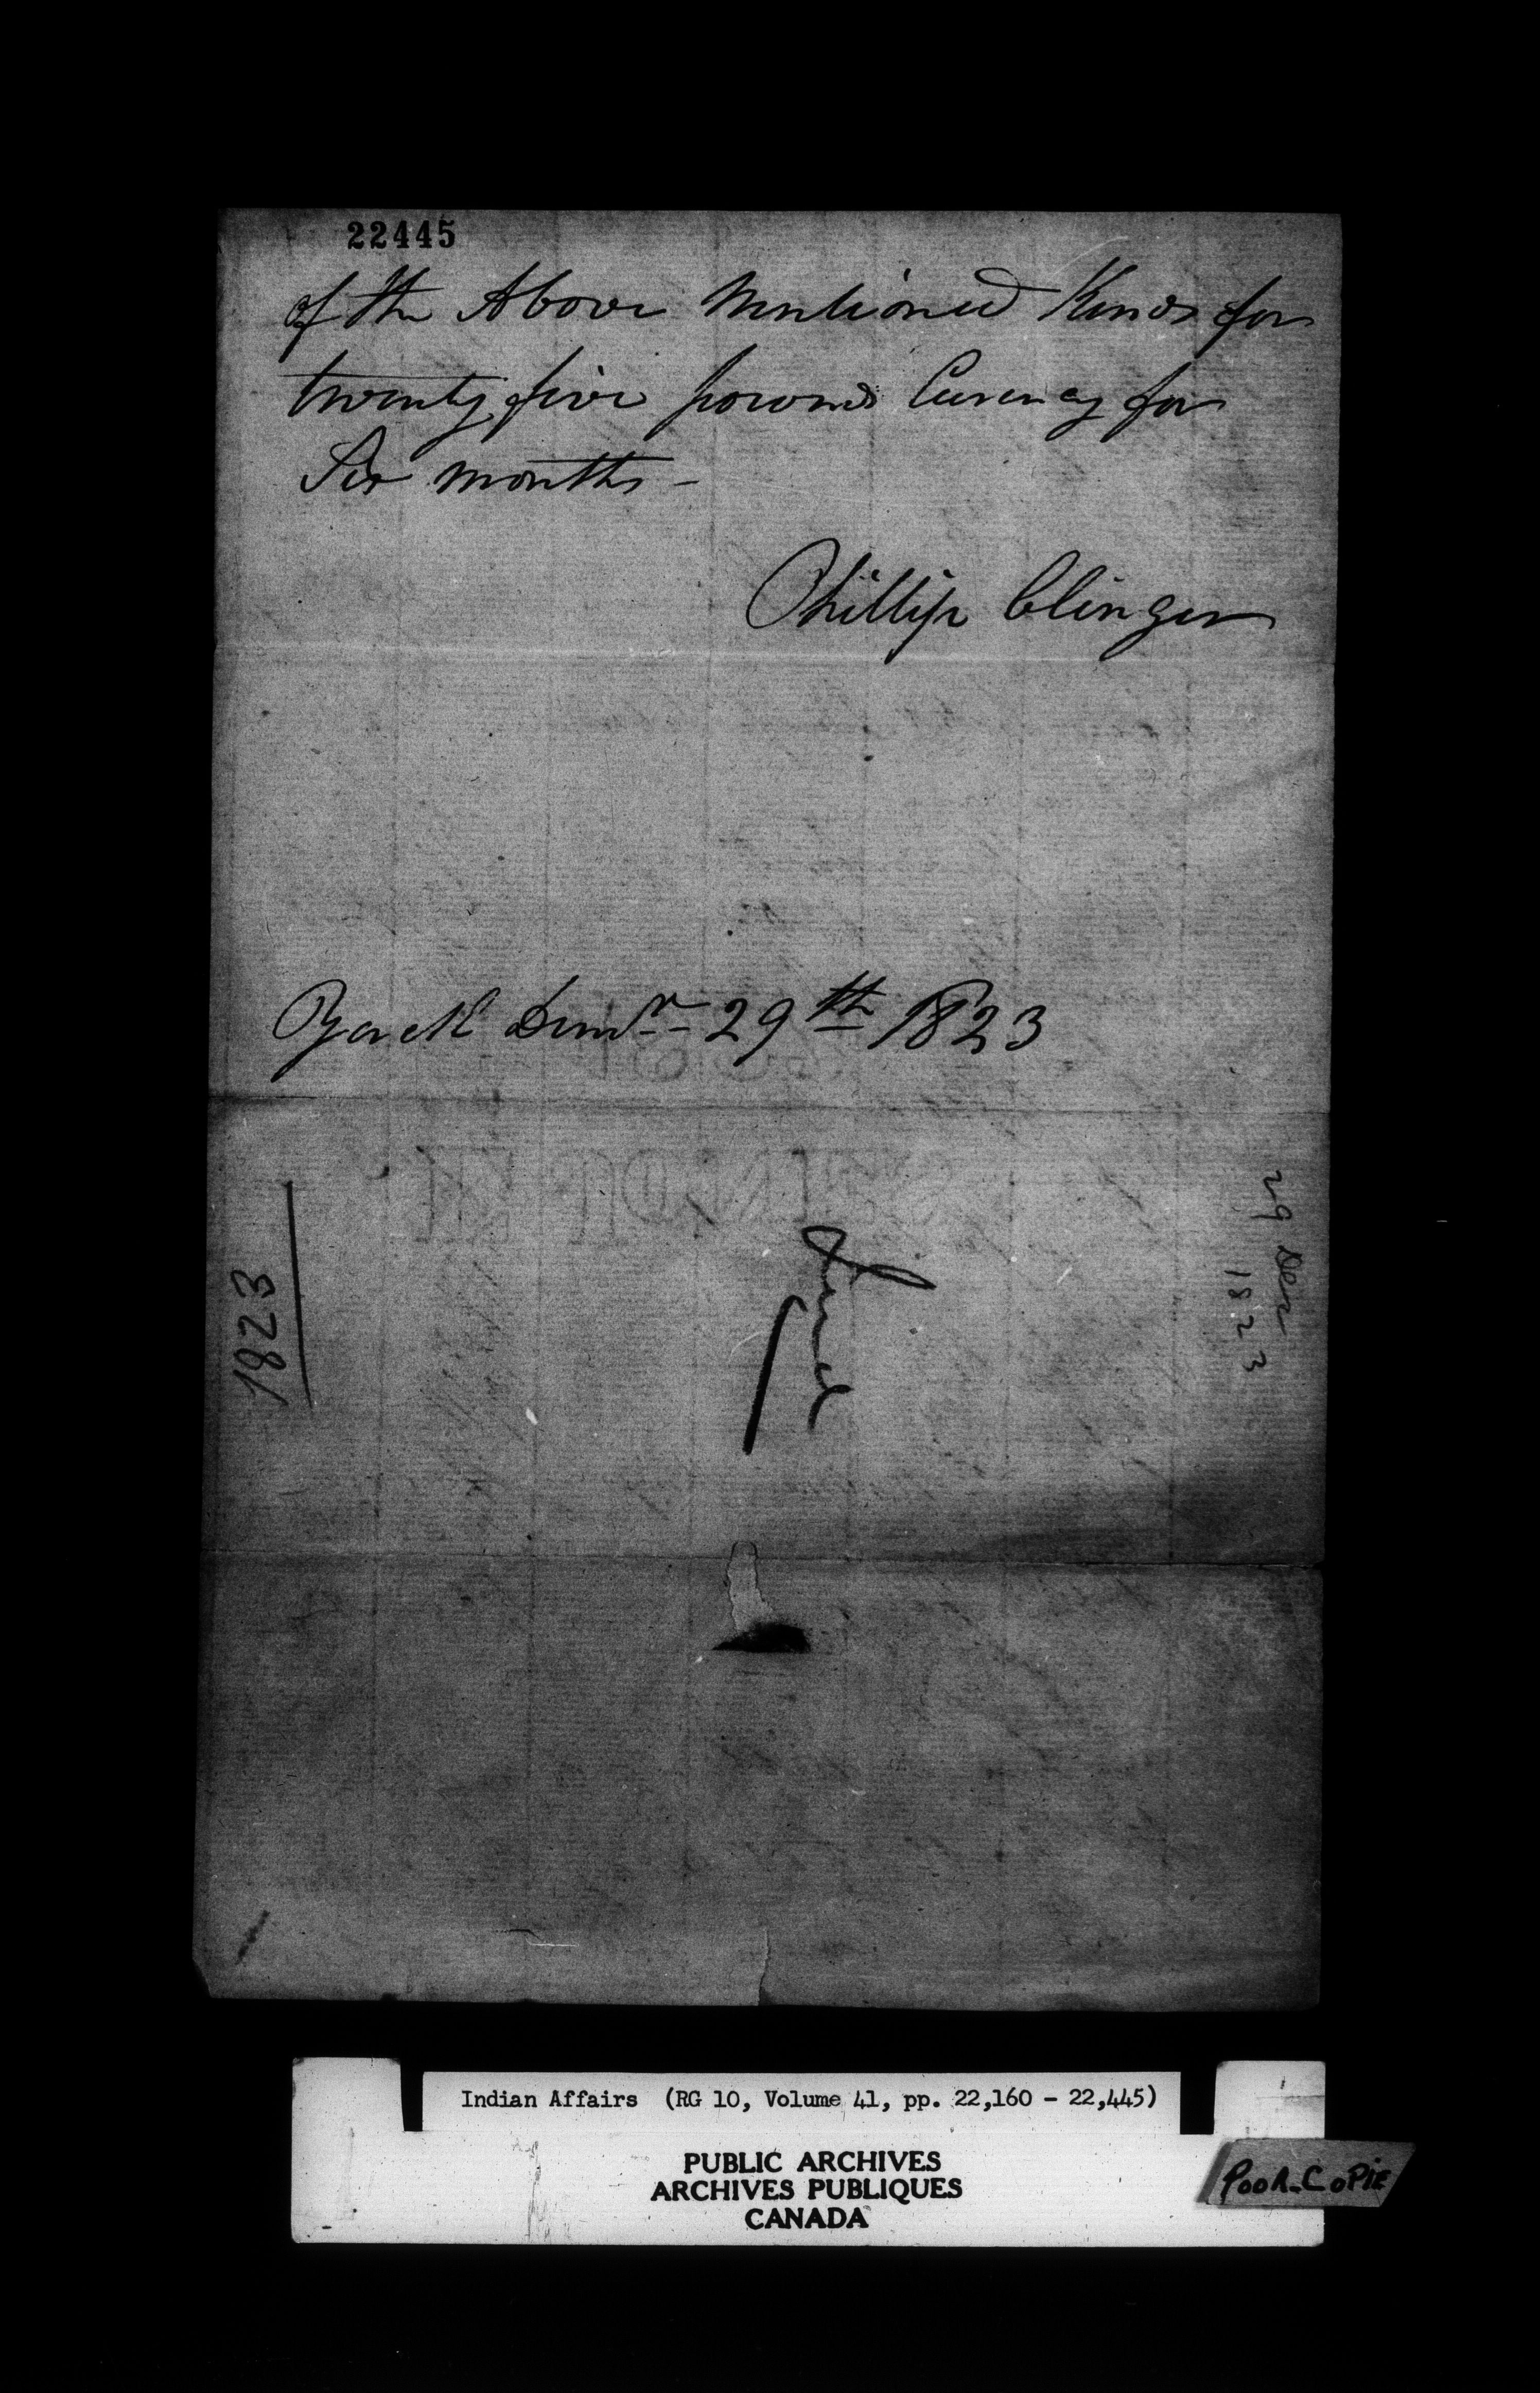 22445
of the Above Mentioned Kinds for
twenty five pounds Currency for
Six months -
Phillip Clinger
York Decmbr 29th 1823
1823
29 Decr
1823
Indian Affairs (RG 10, Volume 41, pp. 22,160 - 22,445)
PUBLIC ARCHIVES
ARCHIVES PUBLIQUES
CANADA
POOR COPIE